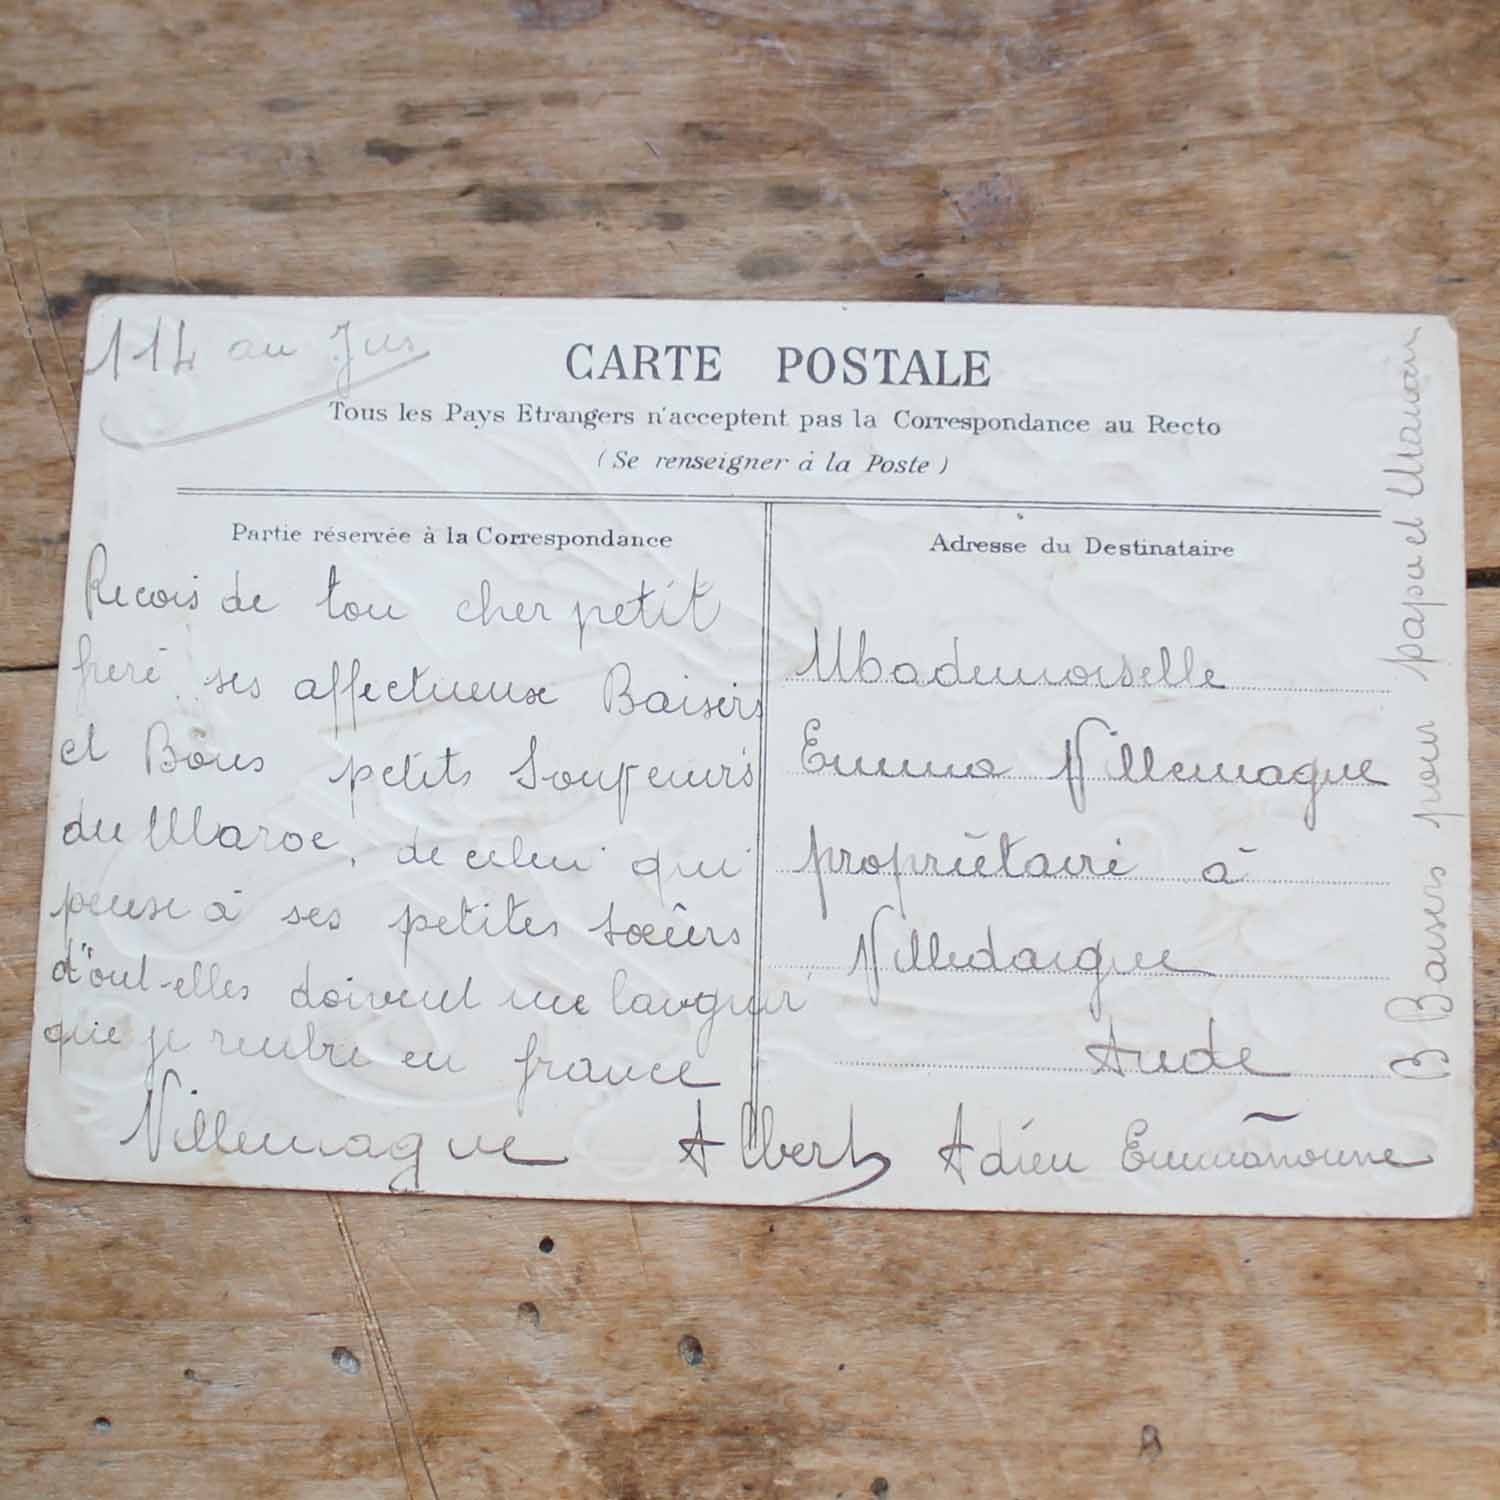 114 au Jus
CARTE POSTALE
Tous les Pays Etrangers n'acceptent pas la Correspondance au Recto
(Se renseigner à la Poste)
Partie réservée à la Correspondance
Recois de ton cher petit
frere ses affectueux Baisers
et Bons petits Souvenirs
du Maroc, de celui qui
pense à ses petites soeurs
d'ont-elles doivent me languir
que je rentre en france
Villemagne Albert
Adresse du Destinataire
Mademoiselle
Emma Villemagne
propriétaire à
Villedaigne
Aude
Adieu Emmanoune
B Baisers pour papa et Maman